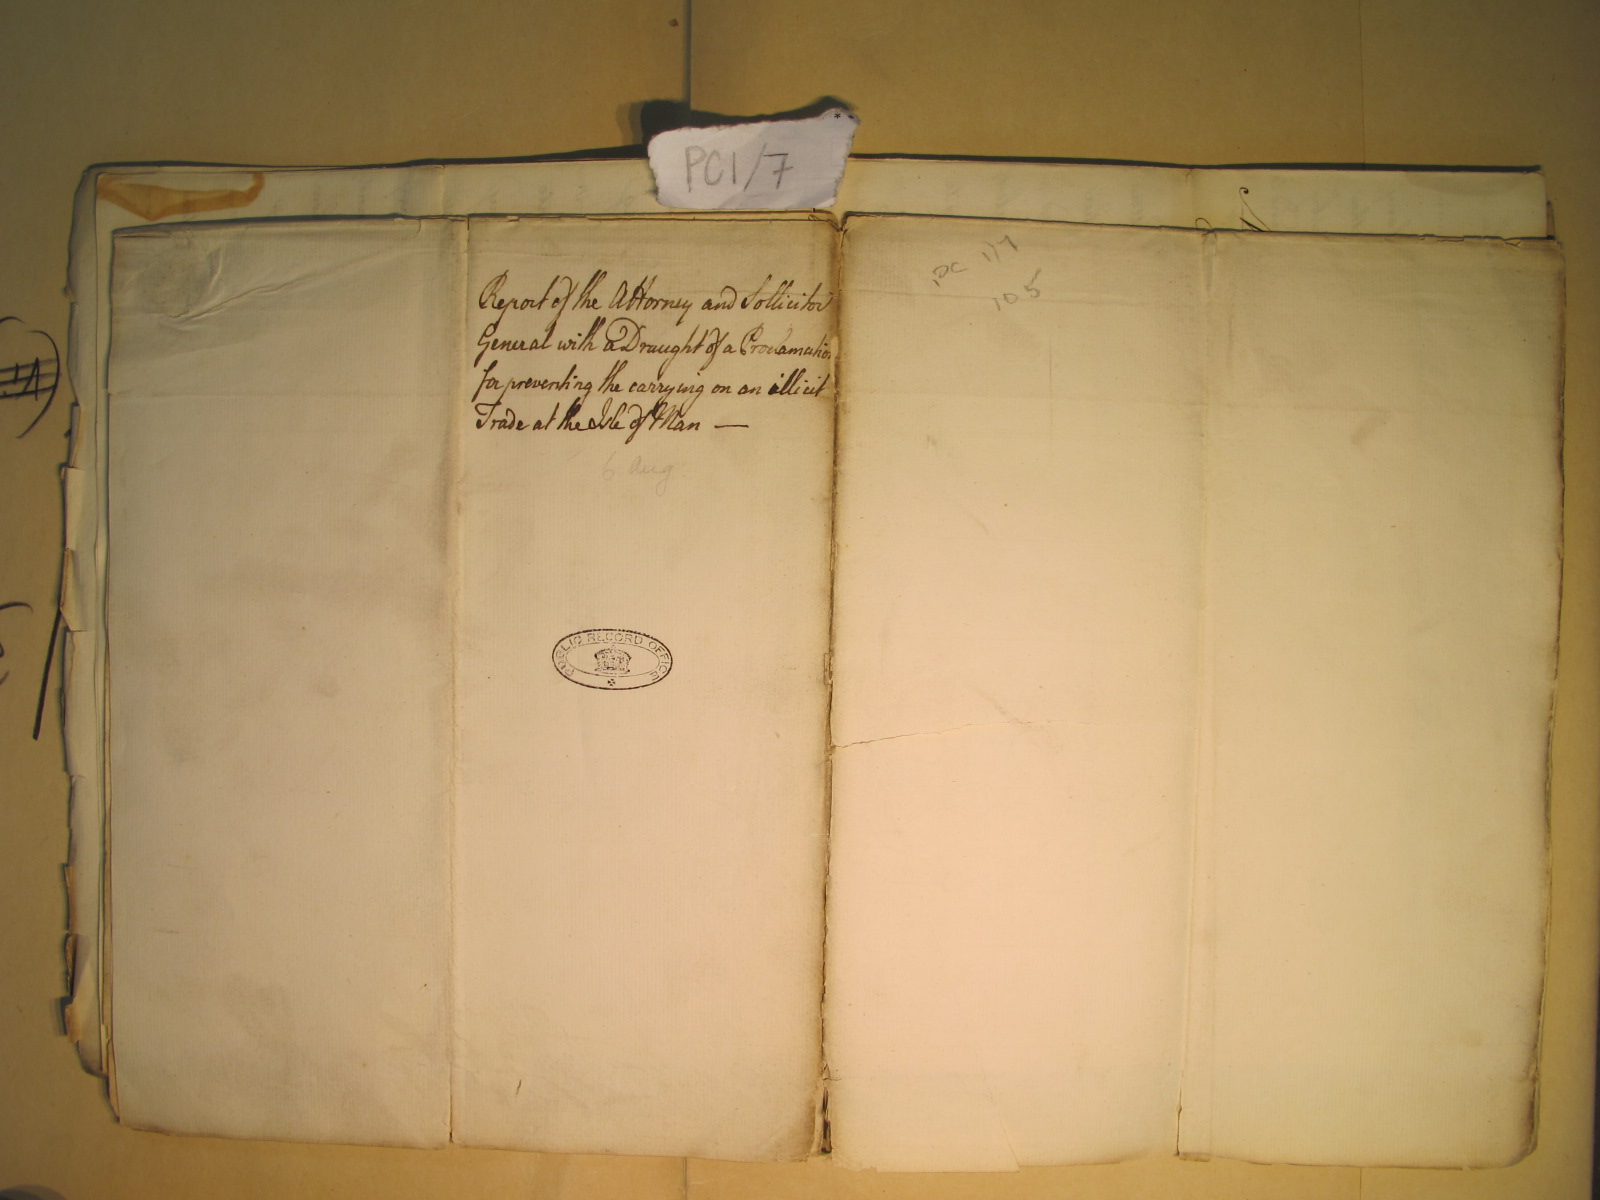 PC1/7
Report of the Attorney and Sollicitor
General with a Draught of a Proclamation
for preventing the carrying on an illicit
Trade at the Isle of Man —
6 Aug
PUBLIC RECORD OFFICE
PC 1/7
105